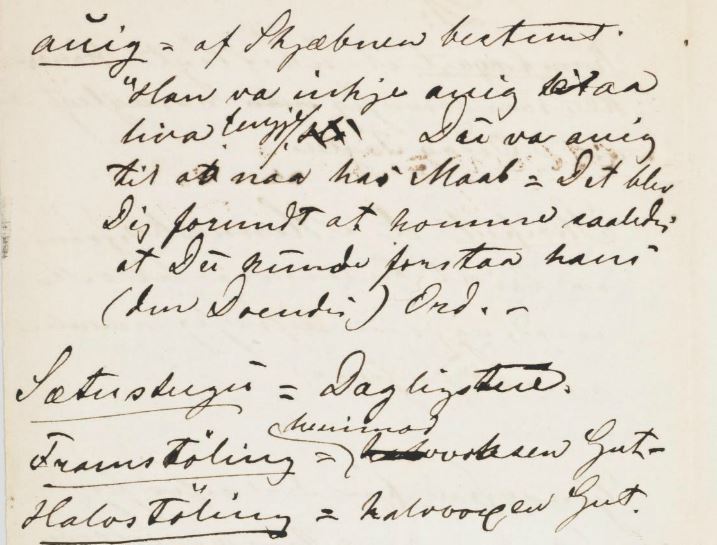 auig = af Skjæbnen bestemt.
"Han va inkje auig taa
liva lengje. Du va auig
til at naa has Maal = Det blev
Dig forundt at komme saaledes
at Du kunde forstaa hans
(den Doendes) Ord. -
Sæterstugu = Dagligstue.
Framstöling = henimod voksen Gut-
Halvstöling = halvvoxen Gut.